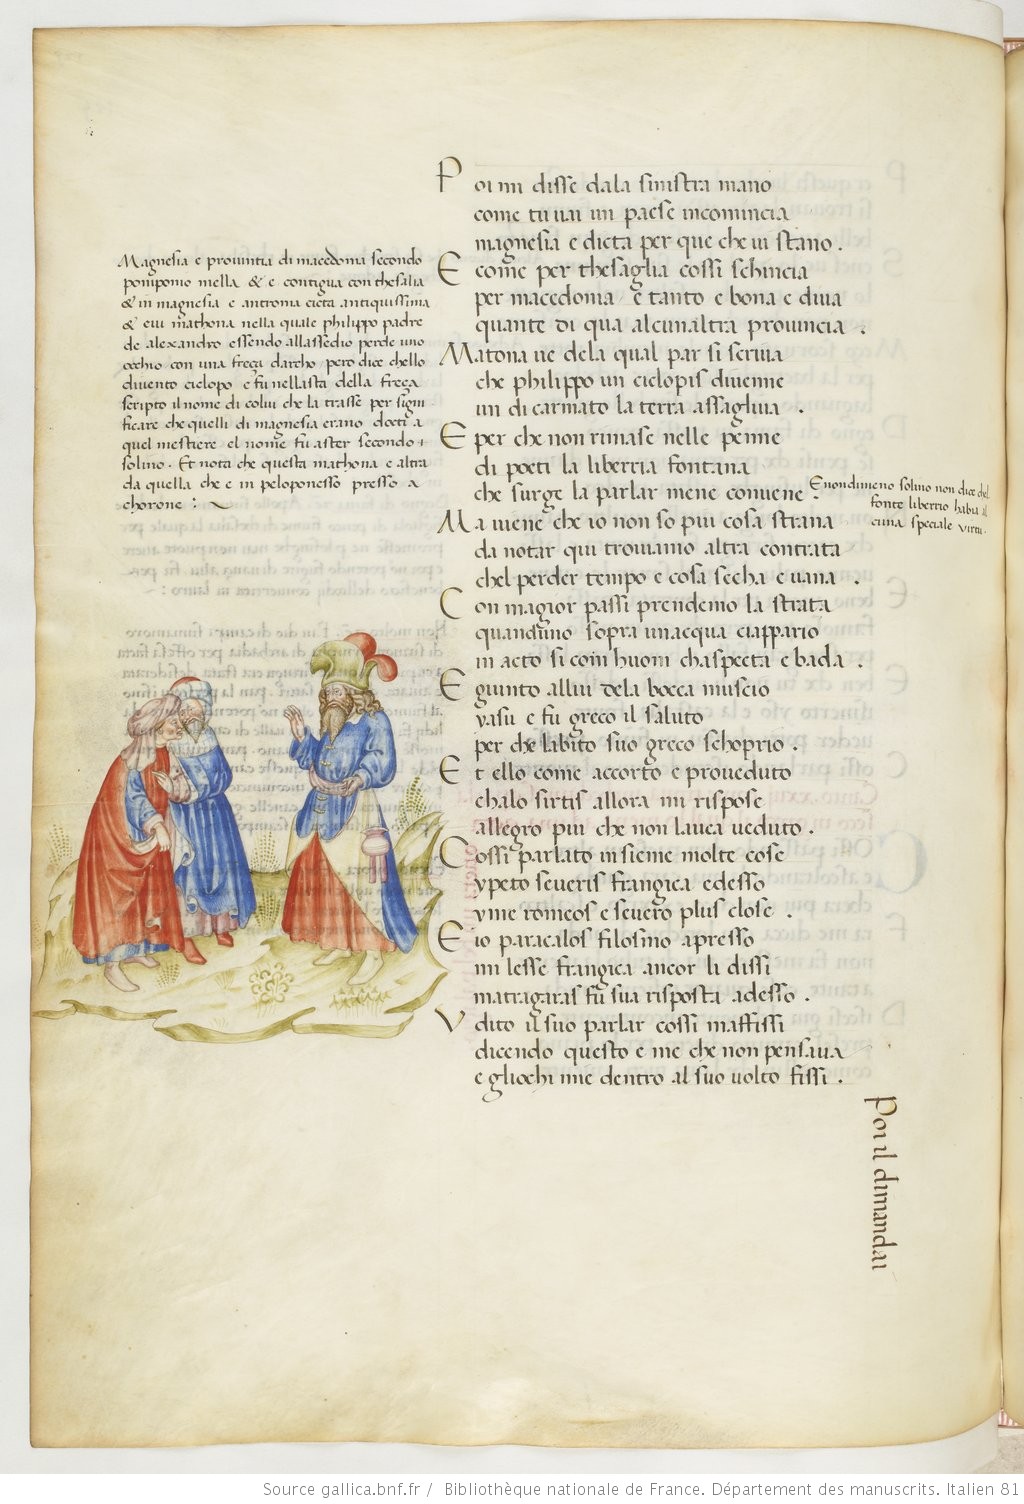 Poi mi disse dala sinistra mano
come tu uai un paese incomincia
magnesia e dicta per que che iui stano .
E come per thesaglia cossi schincia
per macedonia e tanto e bona e diua
quante di qua alcunaltra prouincia .
Matona ue dela qual par si scriua
che philippo un ciclopis diuenne
un di carmato la terra assagliua .
E per che non rimase nelle penne
di poeti la liberria fontana
che surge la parlar mene conuene
Ma uiene che io non so piu cosa strana
da notar qui trouiamo altra contrata
chel perder tempo e cosa secha e uana .
Con magior passi prendemo la strata
quanduno sopra unacqua ciappario
in acto si com huom chaspecta e bada .
E giunto allui dela bocca muscio
yasu e fu greco il saluto
per che labito suo greco schoprio .
Et ello come accorto e proueduto
chalo sirtis allora mi rispose
allegro piu che non lauea ueduto .
Cossi parlato insieme molte cose
ypeto seueris frangica edesso
yme romeos e seuero plus close .
E io paracalos filosmo apresso
mi lesse frangica ancor li dissi
matragaras fu sua risposta adesso .
Udito il suo parlar cossi maffissi
dicendo questo e me che non pensaua
e gliochi mie dentro al suo uolto fissi .
Magnesia e prouintia di macedonia secondo
pomponio mella & e contigua con thesalia
& in magnesia e antronia cicta antiquissima
& eui mathona nella quale philippo padre
de alexandro essendo allassedio perde uno
occhio con una freça darcho pero dice chello
diuento ciclopo e fu nellasta della freça
scripto il nome di colui che la trasse per signi
ficare che quelli di magnesia erano docti a
quel mestiere el nome fu aster secondo
solino . Et nota che questa mathona e altra
da quella che e in peloponesso presso a
chorone :
E nondimeno solino non dice del
fonte liberrio habia al
cuna speciale virtu .
Poi il dimandai
Source gallica.bnf.fr / Bibliothèque nationale de France. Département des manuscrits. Italien 81